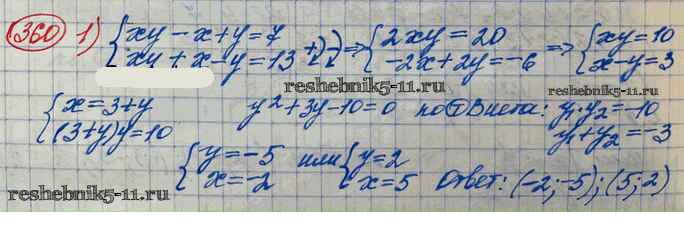 360 1) { xy - x + y = 7
xy + x - y = 13 +) -) => { 2xy = 20
-2x + 2y = -6 => { xy = 10
x - y = 3
reshebnik5-11.ru
reshebnik5-11.ru
{ x = 3 + y
(3 + y)y = 10 y² + 3y - 10 = 0 по Т Виета: y₁·y₂ = -10
y₁ + y₂ = -3
{ y = -5
x = -2 или { y = 2
x = 5 Ответ: (-2; -5); (5; 2)
reshebnik5-11.ru